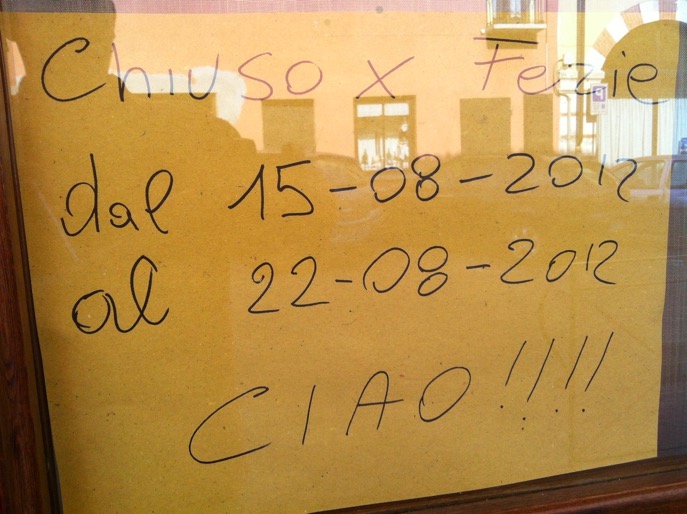 Chiuso x Ferie
dal 15-08-2012
al 22-08-2012
CIAO!!!!